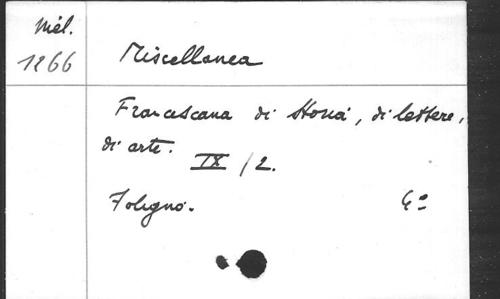 Mél.
1266
Miscellanea
Francescana di Storia, di lettere,
di arte.
IX / 2.
Foligno. 4°